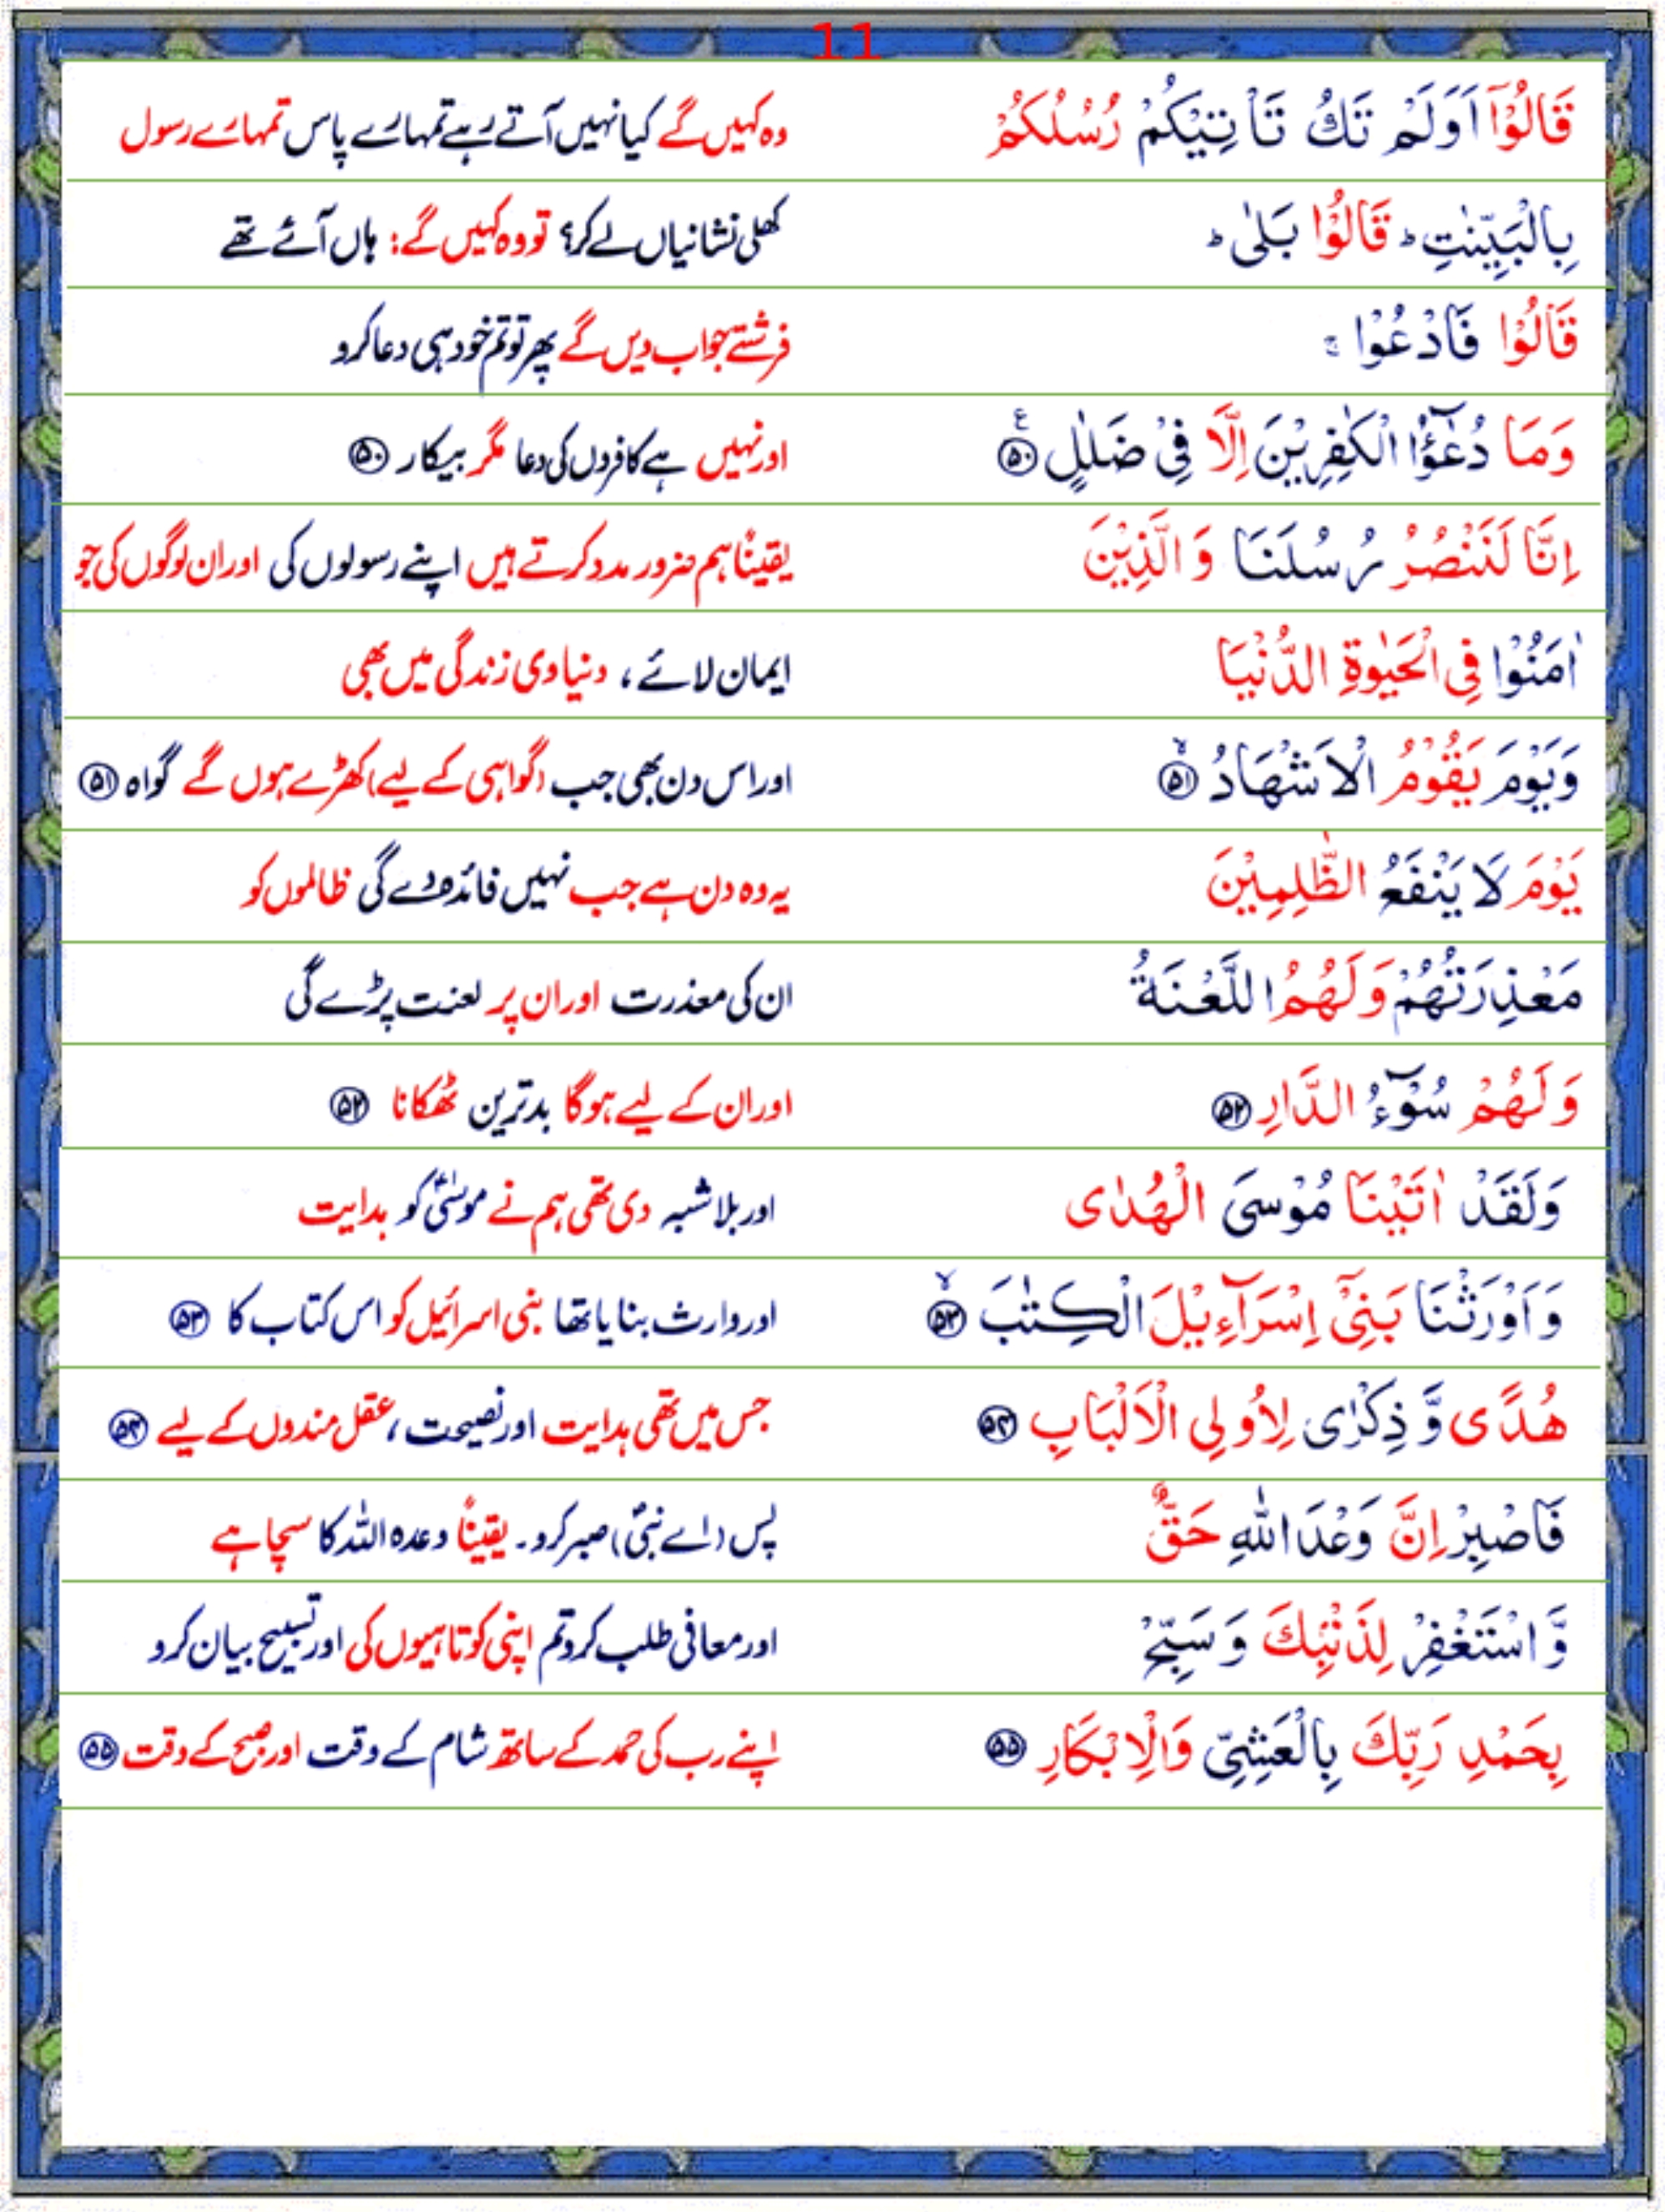 11
قَالُوْۤا اَوَلَمْ تَكُ تَاْتِيْكُمْ رُسُلُكُمْ وہ کہیں گے کیا نہیں آتے رہے تمہارے پاس تمہارے رسول
بِالْبَيِّنٰتِ ؕ قَالُوْا بَلٰى ؕ کھلی نشانیاں لے کر؟ تو وہ کہیں گے: ہاں آئے تھے
قَالُوْا فَادْعُوْا ۚ فرشتے جواب دیں گے پھر تو تم خود ہی دعا کرو
وَمَا دُعٰٓؤُا الْكٰفِرِيْنَ اِلَّا فِيْ ضَلٰلٍ ﴿۵۰﴾ ع اور نہیں ہے کافروں کی دعا مگر بیکار ﴿۵۰﴾
اِنَّا لَنَنْصُرُ رُسُلَنَا وَالَّذِيْنَ یقیناً ہم ضرور مدد کرتے ہیں اپنے رسولوں کی اور ان لوگوں کی جو
اٰمَنُوْا فِي الْحَيٰوةِ الدُّنْيَا ایمان لائے، دنیاوی زندگی میں بھی
وَيَوْمَ يَقُوْمُ الْاَشْهَادُ ﴿۵۱﴾ۙ اور اس دن بھی جب (گواہی کے لیے) کھڑے ہوں گے گواہ ﴿۵۱﴾
يَوْمَ لَا يَنْفَعُ الظّٰلِمِيْنَ یہ وہ دن ہے جب نہیں فائدہ دے گی ظالموں کو
مَعْذِرَتُهُمْ وَلَهُمُ اللَّعْنَةُ ان کی معذرت اور ان پر لعنت پڑے گی
وَلَهُمْ سُوْٓءُ الدَّارِ ﴿۵۲﴾ اور ان کے لیے ہوگا بدترین ٹھکانا ﴿۵۲﴾
وَلَقَدْ اٰتَيْنَا مُوْسَى الْهُدٰى اور بلاشبہ دی تھی ہم نے موسیٰؑ کو ہدایت
وَاَوْرَثْنَا بَنِيْٓ اِسْرَآءِيْلَ الْكِتٰبَ ﴿۵۳﴾ۙ اور وارث بنایا تھا بنی اسرائیل کو اس کتاب کا ﴿۵۳﴾
هُدًى وَّذِكْرٰى لِاُولِي الْاَلْبَابِ ﴿۵۴﴾ جس میں تھی ہدایت اور نصیحت، عقل مندوں کے لیے ﴿۵۴﴾
فَاصْبِرْ اِنَّ وَعْدَ اللّٰهِ حَقٌّ پس (اے نبیؐ) صبر کرو۔ یقیناً وعدہ اللہ کا سچا ہے
وَّاسْتَغْفِرْ لِذَنْۢبِكَ وَسَبِّحْ اور معافی طلب کرو تم اپنی کوتاہیوں کی اور تسبیح بیان کرو
بِحَمْدِ رَبِّكَ بِالْعَشِيِّ وَالْاِبْكَارِ ﴿۵۵﴾ اپنے رب کی حمد کے ساتھ شام کے وقت اور صبح کے وقت ﴿۵۵﴾